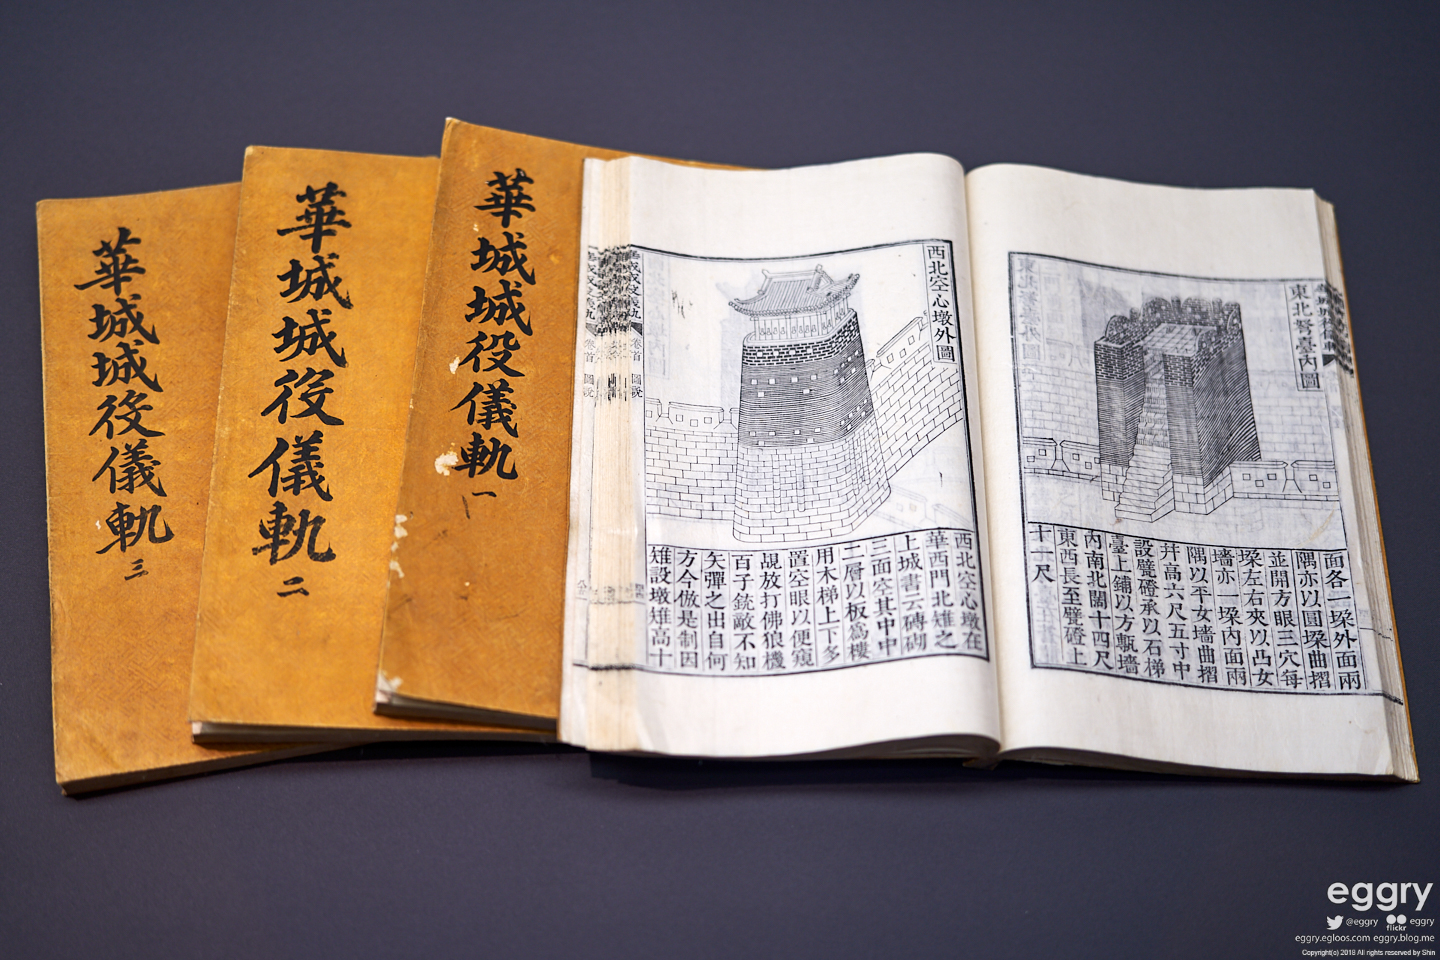 華城城役儀軌 三
華城城役儀軌 二
華城城役儀軌 一
東北弩臺內圖
面各二垜外面兩
隅亦以圓垜曲摺
並開方眼三穴每
垜左右夾以凸女
墻亦一垜內面兩
隅以平女墻曲摺
幷高六尺五寸中
設甓磴承以石梯
臺上鋪以方甎墻
內南北闊十四尺
東西長至甓磴上
十一尺
西北空心墩外圖
西北空心墩在
華西門北雉之
上城書云磚砌
三面空其中中
二層以板爲樓
用木梯上下多
置空眼以便窺
覘放打佛狼機
百子銃敵不知
矢彈之出自何
方今倣是制因
雉設墩雉高十
卷首 圖說
eggry
@eggry flickr eggry
eggry.egloos.com eggry.blog.me
Copyright(c) 2018 All rights reserved by Shin